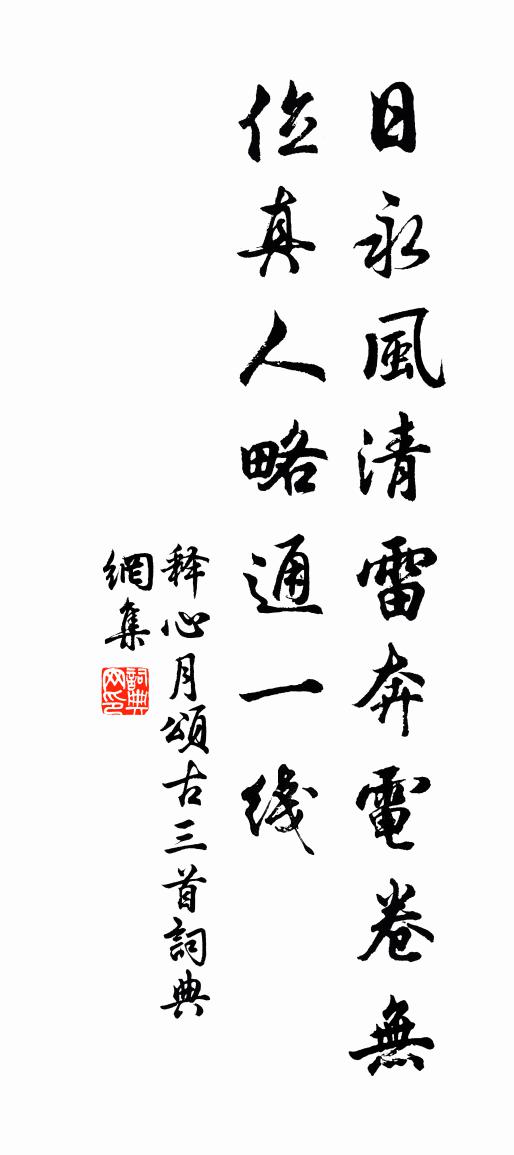 日永風清雷奔電卷無
位真人略通一线
释心月頌古三首詞典
網集
詞典
网印